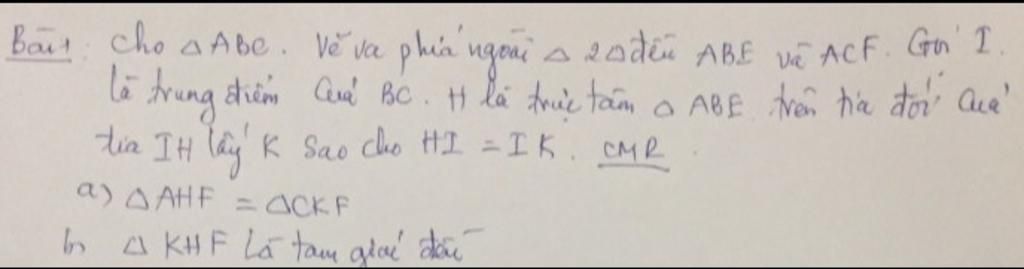 Bài 1: Cho △ABC. Vẽ va phía ngoài △ 2△ đều ABE và ACF. Gọi I
là trung điểm Của BC. H là trực tâm △ ABE. trên tia đối Của
tia IH lấy K Sao cho HI = IK. CMR
a) △AHF = △CKF
b) △ KHF là tam giác đều